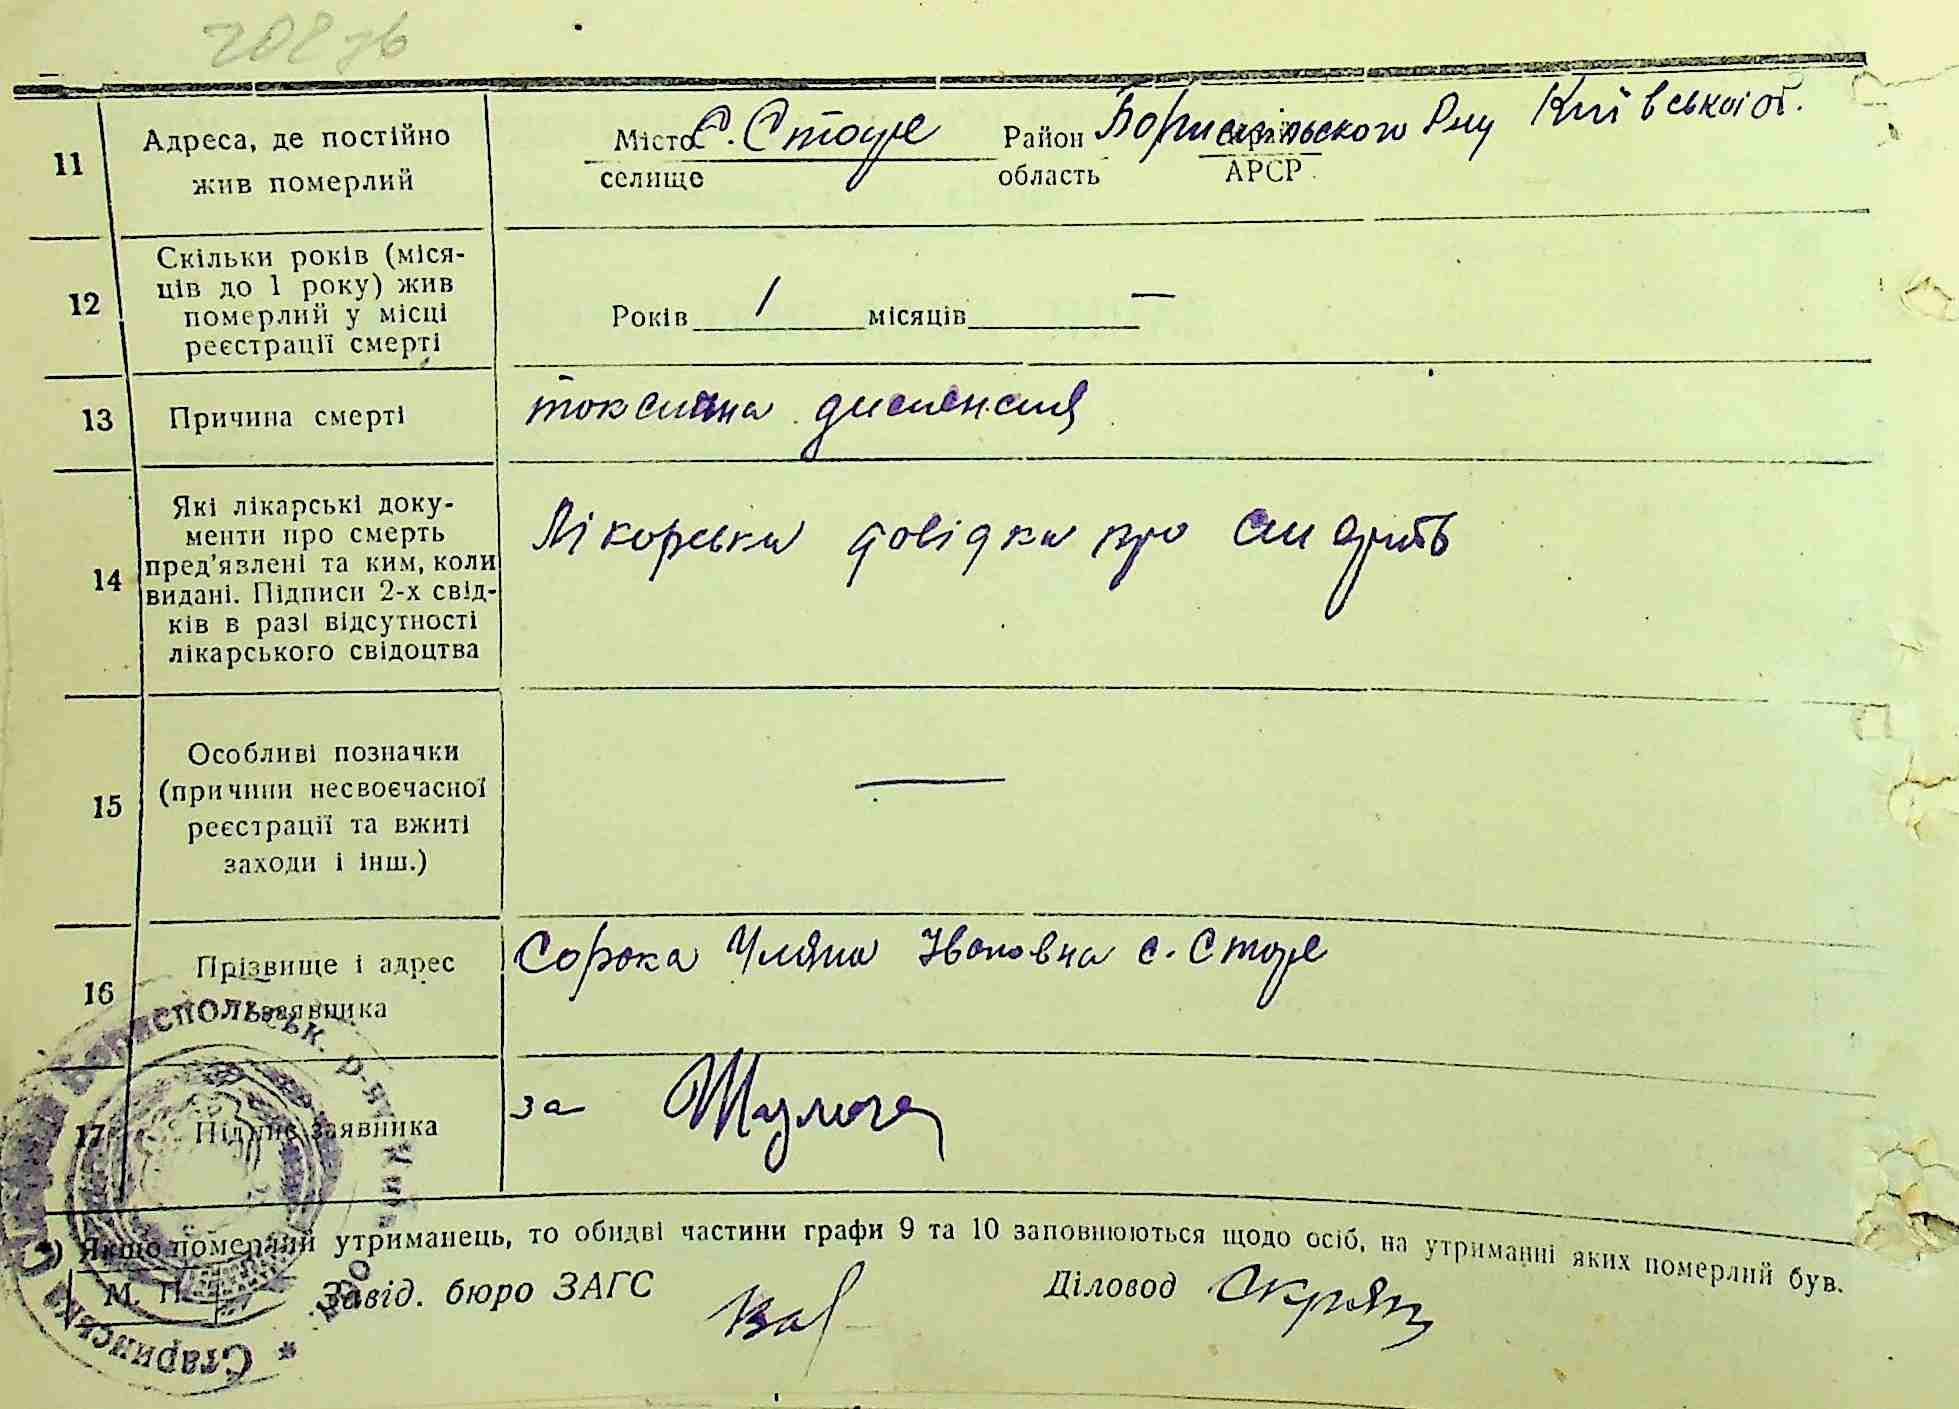 11
Адреса, де постійно
жив померлий
Місто С. Старе Район Бориспільського Р-ну Київської об.
селище область АРСР
12
Скільки років (міся-
ців до 1 року) жив
померлий у місці
реєстрації смерті
Років 1 місяців —
13
Причина смерті
токсична диспенсия
14
Які лікарські доку-
менти про смерть
пред'явлені та ким, коли
видані. Підписи 2-х свід-
ків в разі відсутності
лікарського свідоцтва
Лікорська довідка про смерть
15
Особливі позначки
(причини несвоєчасної
реєстрації та вжиті
заходи і інш.)
—
16
Прізвище і адрес
заявника
Сорока Уляна Івановна с. Старе
17
Підпис заявника
за
*) Якщо померлий утриманець, то обидві частини графи 9 та 10 заповнюються щодо осіб, на утриманні яких померлий був.
М. П.
Завід. бюро ЗАГС
Діловод